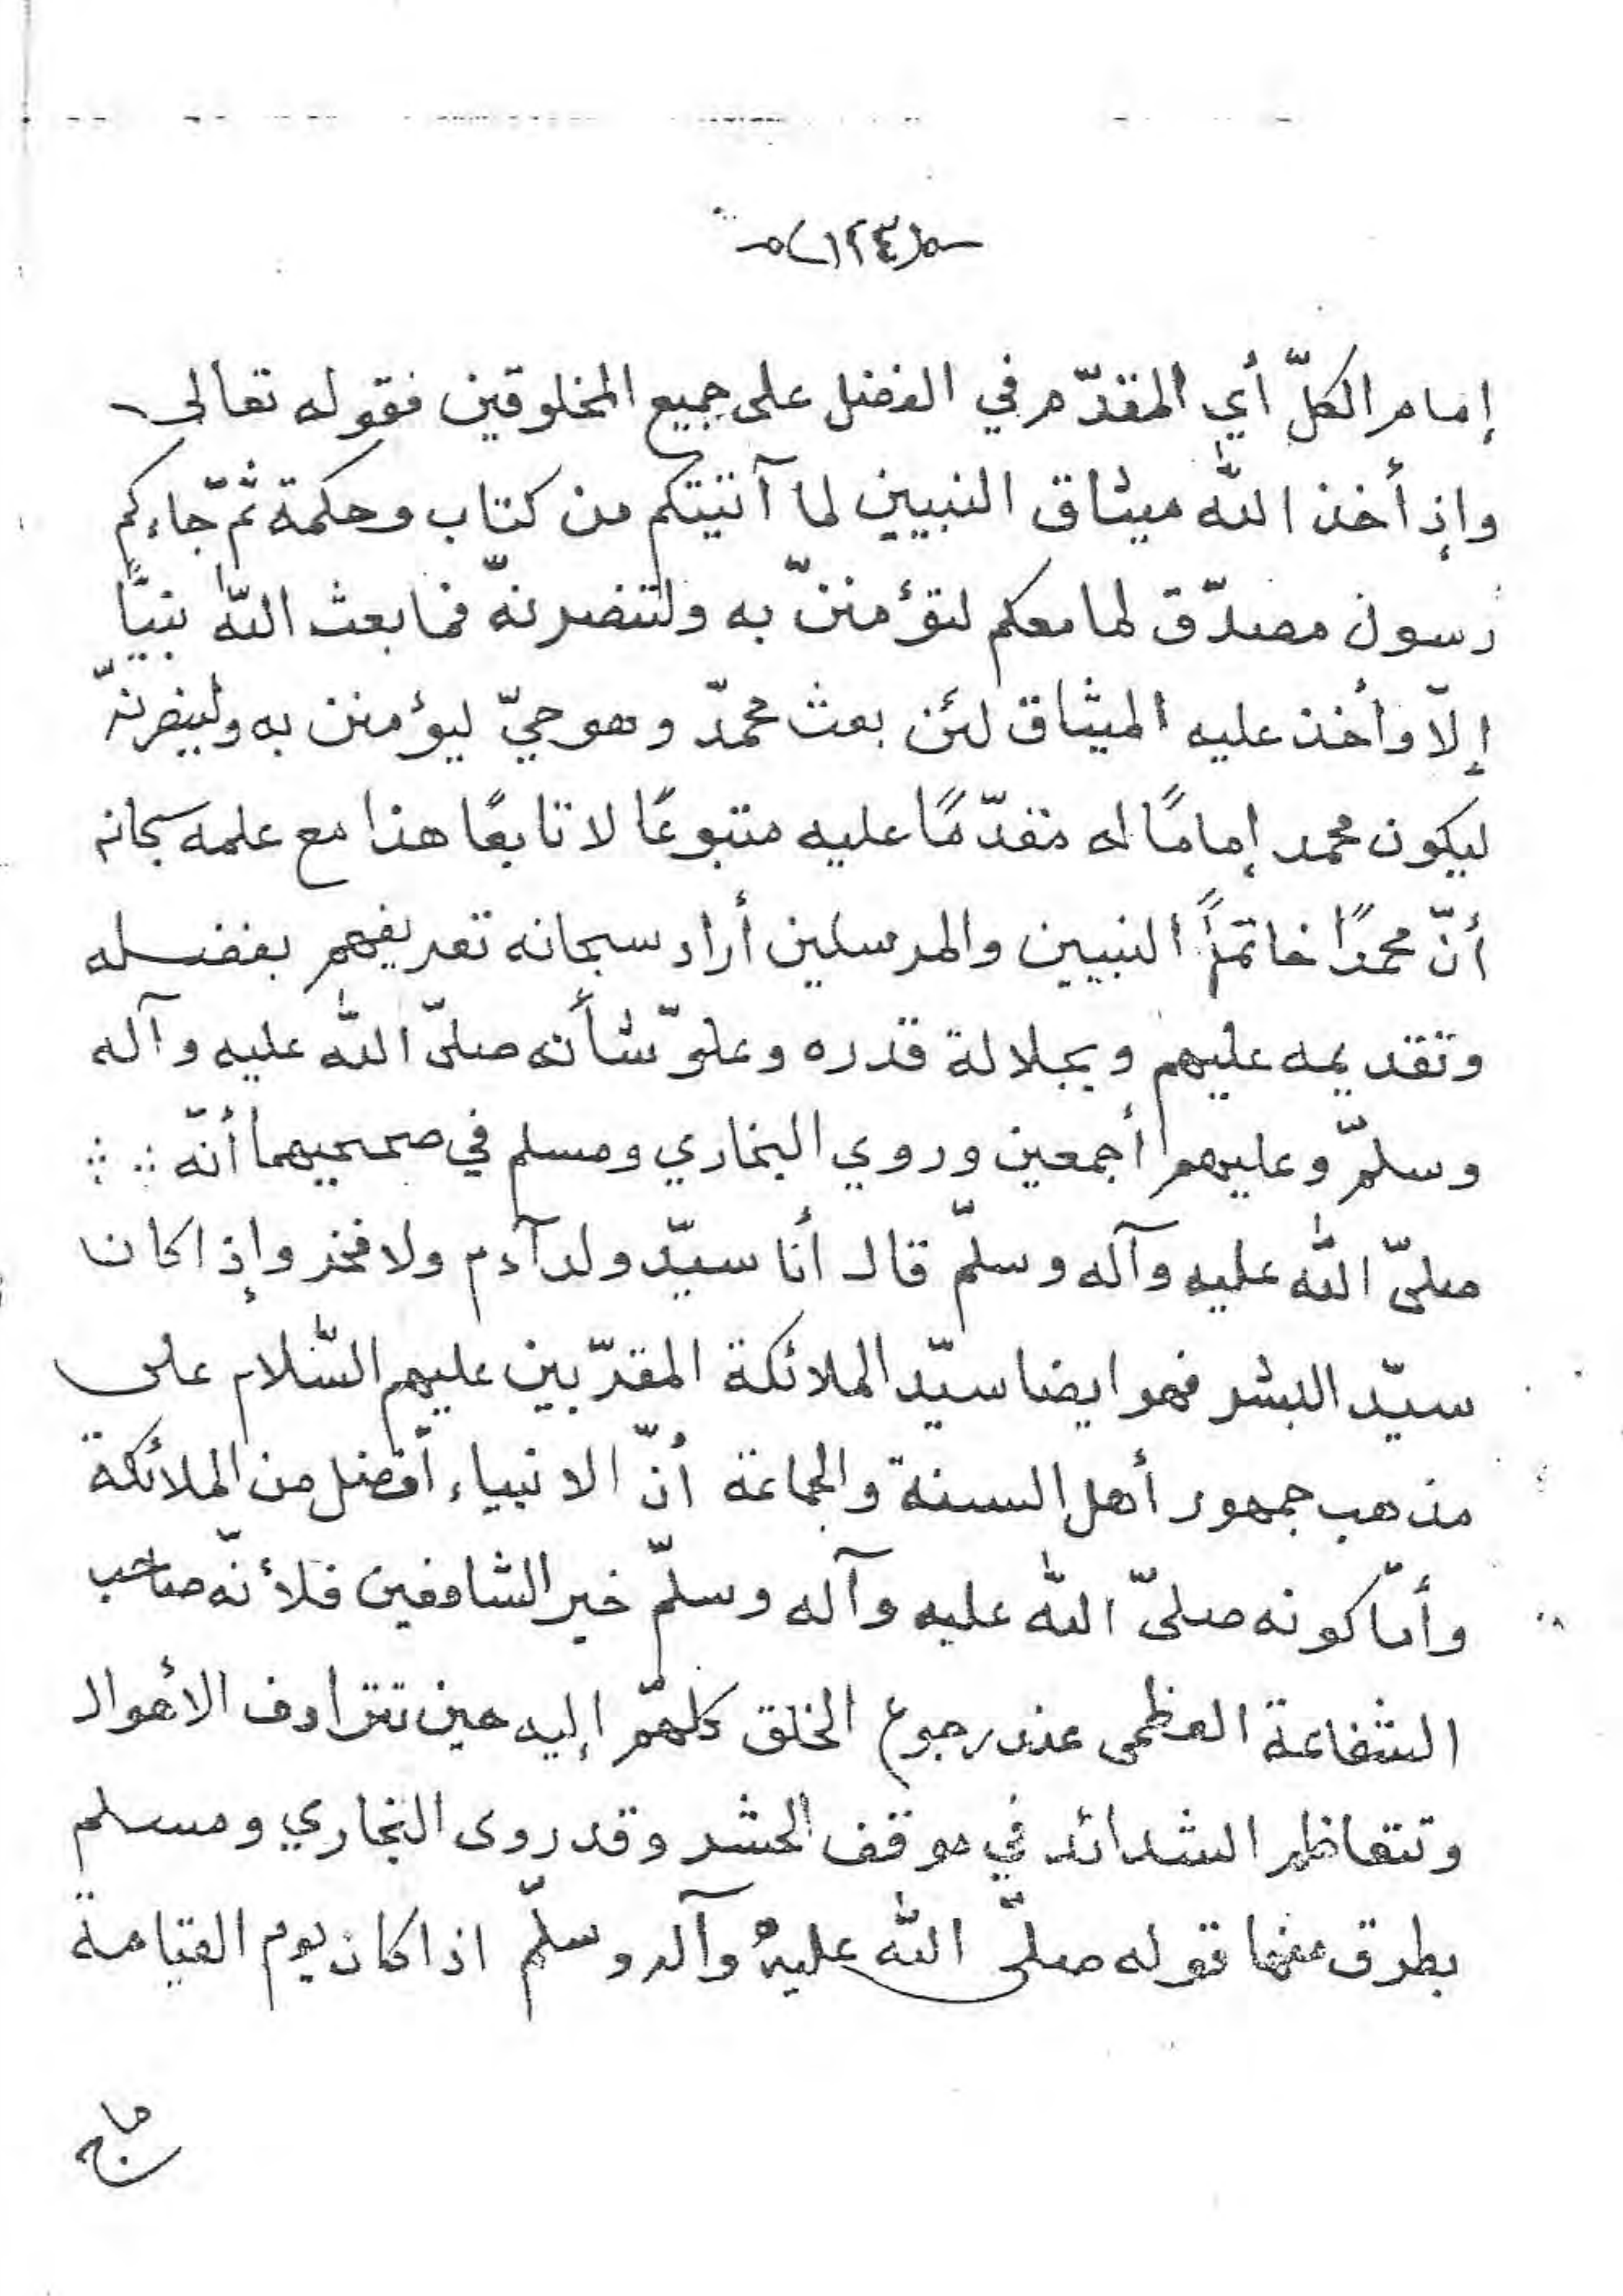 (١٢٤)
إمام الكلّ أي المقدّم في الفضل على جميع المخلوقين فقوله تعالى
وإذ أخذ الله ميثاق النبيين لما آتيتكم من كتاب وحكمة ثمّ جاءكم
رسول مصدّق لما معكم لتؤمننّ به ولتنصرنّه فما بعث الله نبيًّا
إلّا وأخذ عليه الميثاق لئن بعث محمّد وهو حيّ ليؤمنن به ولينصرنّه
ليكون محمد إمامًا له مقدّمًا عليه متبوعًا لا تابعًا هذا مع علمه سبحانه
أنّ محمدًا خاتمًا النبيين والمرسلين أراد سبحانه تعريفهم بفضله
وتقديمه عليهم وبجلالة قدره وعلوّ شأنه صلىّ الله عليه وآله
وسلمّ وعليهم أجمعين وروي البخاري ومسلم في صحيحيهما أنّه
صلىّ الله عليه وآله وسلمّ قال أنا سيّد ولد آدم ولا فخر وإذا كان
سيّد البشر فهو ايضا سيّد الملائكة المقرّبين عليهم السّلام على
مذهب جمهور أهل السنة والجماعة أنّ الانبياء أفضل من الملائكة
وأمّا كونه صلىّ الله عليه وآله وسلمّ خير الشافعين فلأنّه صاحب
الشفاعة العظمى عند رجوع الخلق كلهمّ إليه حين تترادف الأهوال
وتتعاظم الشدائد في موقف الحشر وقد روى البخاري ومسلم
بطرق منها قوله صلىّ الله عليه وآله وسلمّ اذا كان يوم القيامة
ماج